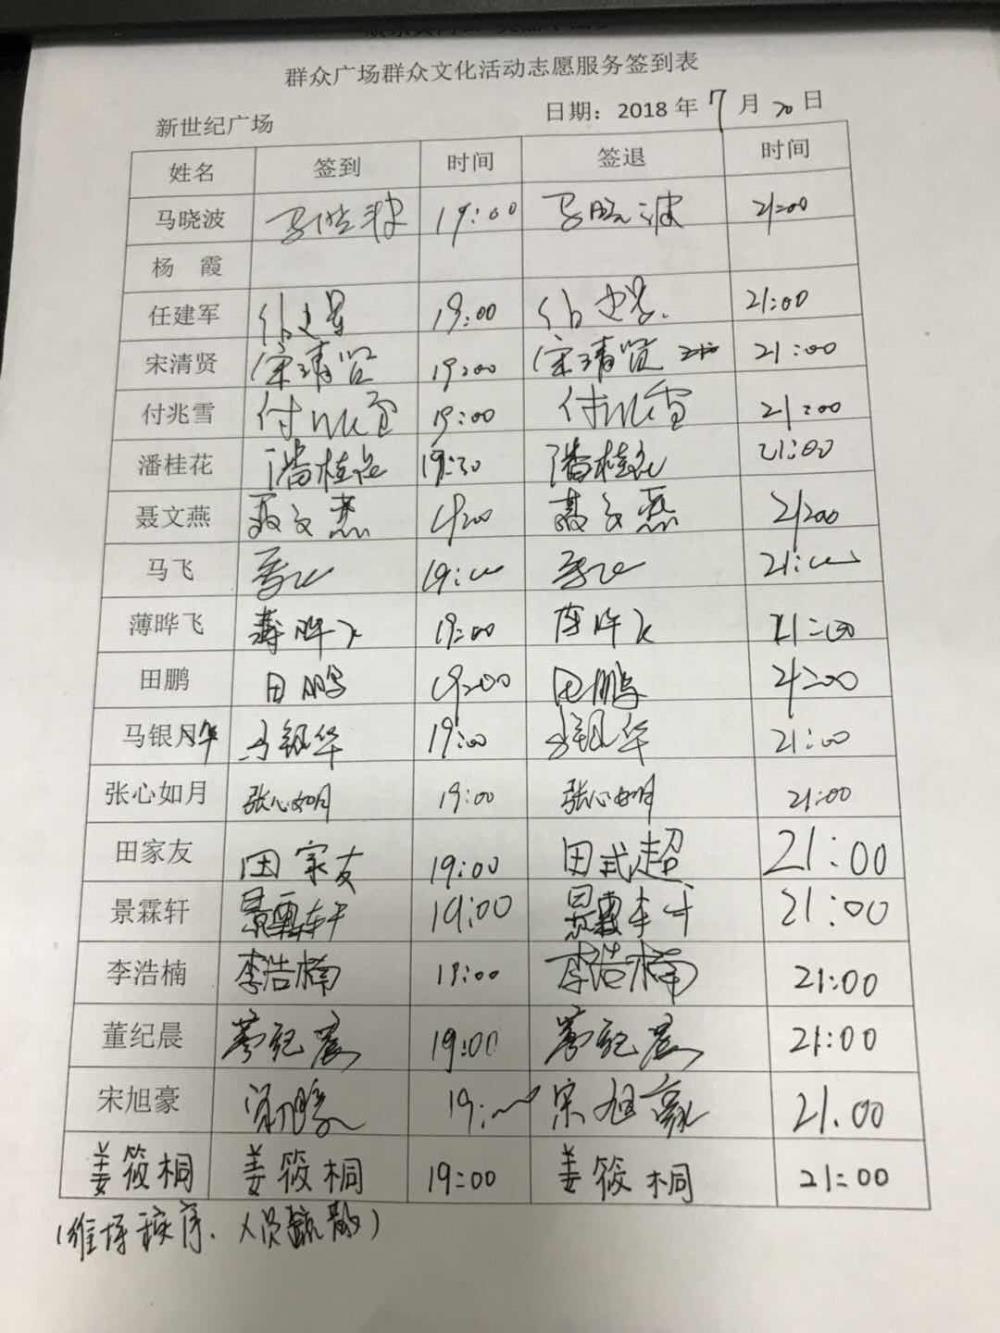 群众广场群众文化活动志愿服务签到表
新世纪广场 日期：2018 年 7 月 20 日
姓名 签到 时间 签退 时间
马晓波 马晓波 19:00 马晓波 21:00
杨 霞
任建军 任建军 19:00 任建军 21:00
宋清贤 宋清贤 19:00 宋清贤 21:00
付兆雪 付兆雪 19:00 付兆雪 21:00
潘桂花 潘桂花 19:00 潘桂花 21:00
聂文燕 聂文燕 19:00 聂文燕 21:00
马飞 马飞 19:00 马飞 21:00
薄晔飞 薄晔飞 19:00 薄晔飞 21:00
田鹏 田鹏 19:00 田鹏 21:00
马银华 马银华 19:00 马银华 21:00
张心如月 张心如月 19:00 张心如月 21:00
田家友 田家友 19:00 田式超 21:00
景霖轩 景霖轩 19:00 景霖轩 21:00
李浩楠 李浩楠 19:00 李浩楠 21:00
董纪晨 董纪晨 19:00 董纪晨 21:00
宋旭豪 19:00 宋旭豪 21:00
姜筱桐 姜筱桐 19:00 姜筱桐 21:00
(维持秩序、人员疏散)